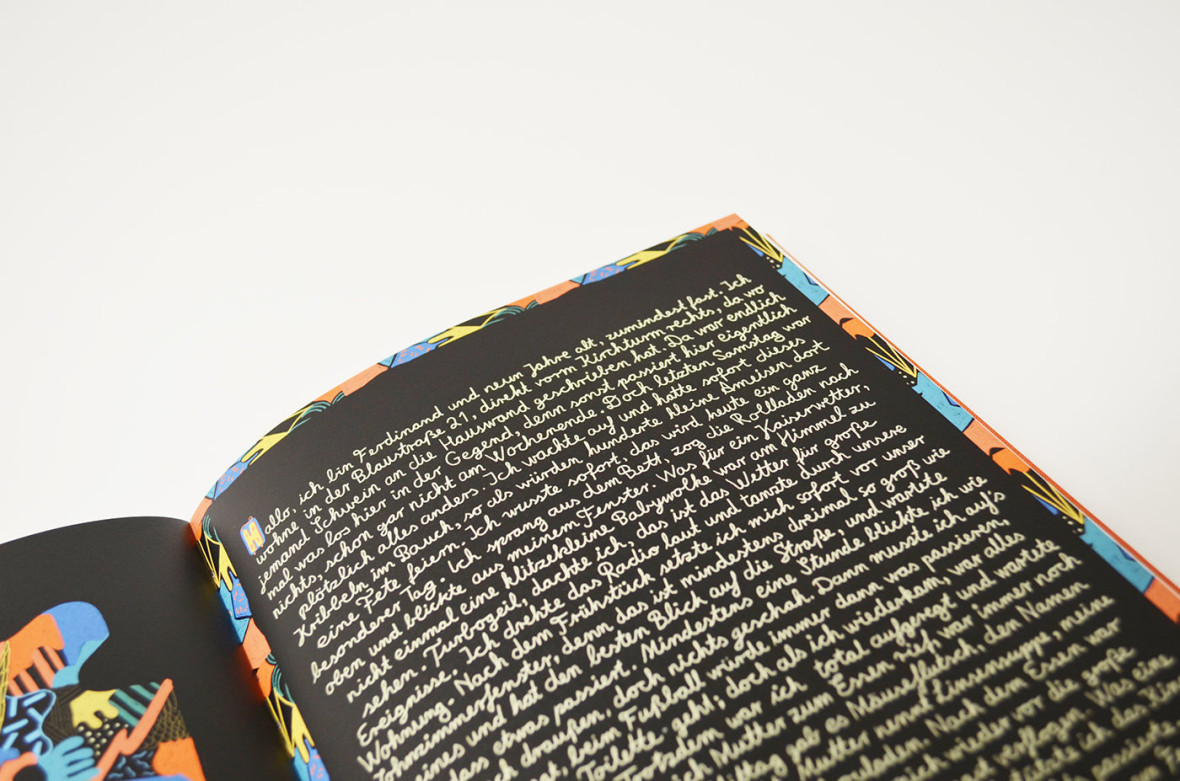 Hallo, ich bin Ferdinand und neun Jahre alt, zumindest fast. Ich
wohne in der Blaustraße 21, direkt vorm Kirchturm rechts, da wo
jemand Schwein an die Hauswand geschrieben hat. Da war endlich
mal was los hier in der Gegend, denn sonst passiert hier eigentlich
nichts, schon gar nicht am Wochenende. Doch letzten Samstag war
plötzlich alles anders. Ich wachte auf und hatte sofort dieses
Kribbeln im Bauch, so als würden hunderte kleine Ameisen dort
eine Fete feiern. Ich wusste sofort, das wird heute ein ganz
besonderer Tag. Ich sprang aus dem Bett, zog die Rollladen nach
oben und blickte aus meinem Fenster. Was für ein Kaiserwetter,
nicht einmal eine klitzekleine Babywolke war am Himmel zu
sehen. Turbogeil, dachte ich, das ist das Wetter für große
Ereignisse. Ich drehte das Radio laut und tanzte durch unsere
Wohnung. Nach dem Frühstück setzte ich mich sofort vor unser
ohnzimmerfenster, denn das ist mindestens dreimal so groß wie
eines und hat den besten Blick auf die Straße, und wartete
dass etwas passiert. Mindestens eine Stunde blickte ich wie
ach draußen, doch nichts geschah. Dann musste ich auf's
beim Fußball würde immer dann was passieren,
Toilette geht; doch als ich wiederkam, war alles
Trotzdem war ich total aufgeregt und wartete
ich Mutter zum Essen rief, war immer noch
ttag gab es Mäuseflatsch, den Namen
Mutter nennt Linsensuppe, meine
Nach dem Essen war
ich wieder vor die große
verflogen. Was eine